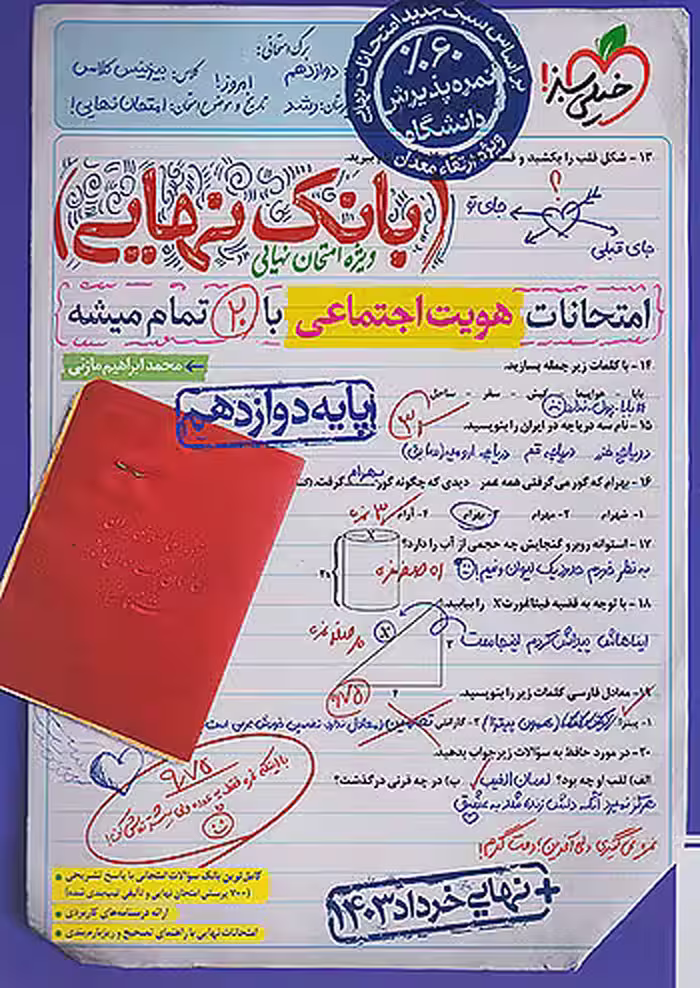 برگ امتحانی:
دوازدهم کلاس: بیزینس کلاس
امروز!
رشد تاریخ و موضوع امتحان: امتحان نهایی!
براساس سبک جدید امتحانات نهایی
%۶۰
نمره پذیرش
دانشگاه
ویژه ارتقاء معدل
خیلی سبز!
۱۳- شکل قلب را بکشید و ببرید.
؟
جای تو
جای قبلی
(بانک نهایی)
ویژه امتحان نهایی
امتحانات هویت اجتماعی با ۲۰ تمام میشه
محمد ابراهیم مازنی
۱۴- با کلمات زیر جمله بسازید.
بابا - هواپیما - کیش - سفر - ساحل
پایه دوازدهم
۱۵- نام سه دریاچه در ایران را بنویسید.
دریاچه خزر دریاچه قم دریاچه ارومیه (سابق)
۱۶- بهرام که گور می‌گرفتی همه عمر دیدی که چگونه گور بهرام گرفت.
۱- شهرام ۲- مهرام ۳- بهرام ۴- آرام
۱۷- استوانه روبرو گنجایش چه حجمی از آب را دارد؟
۱۸- با توجه به قضیه فیثاغورث X را بیابید.
ایناهاش پیداش کردم اینجاست
X
۳
۴
۹/۷۵
۱۹- معادل فارسی کلمات زیر را بنویسید.
۲۰- در مورد حافظ به سوالات زیر جواب بدهید.
الف) لقب او چه بود؟ لسان الغیب ب) در چه قرنی درگذشت؟
هرگز نمیرد آنکه دلش زنده شد به عشق
۹/۷۵
+ نهایی خرداد ۱۴۰۳
کامل‌ترین بانک سوالات امتحانی با پاسخ تشریحی
(۷۰۰ پرسش امتحان نهایی و تألیفی طبقه‌بندی شده)
ارائه درسنامه‌های کاربردی
امتحانات نهایی با راهنمای تصحیح و ریزبارم‌بندی